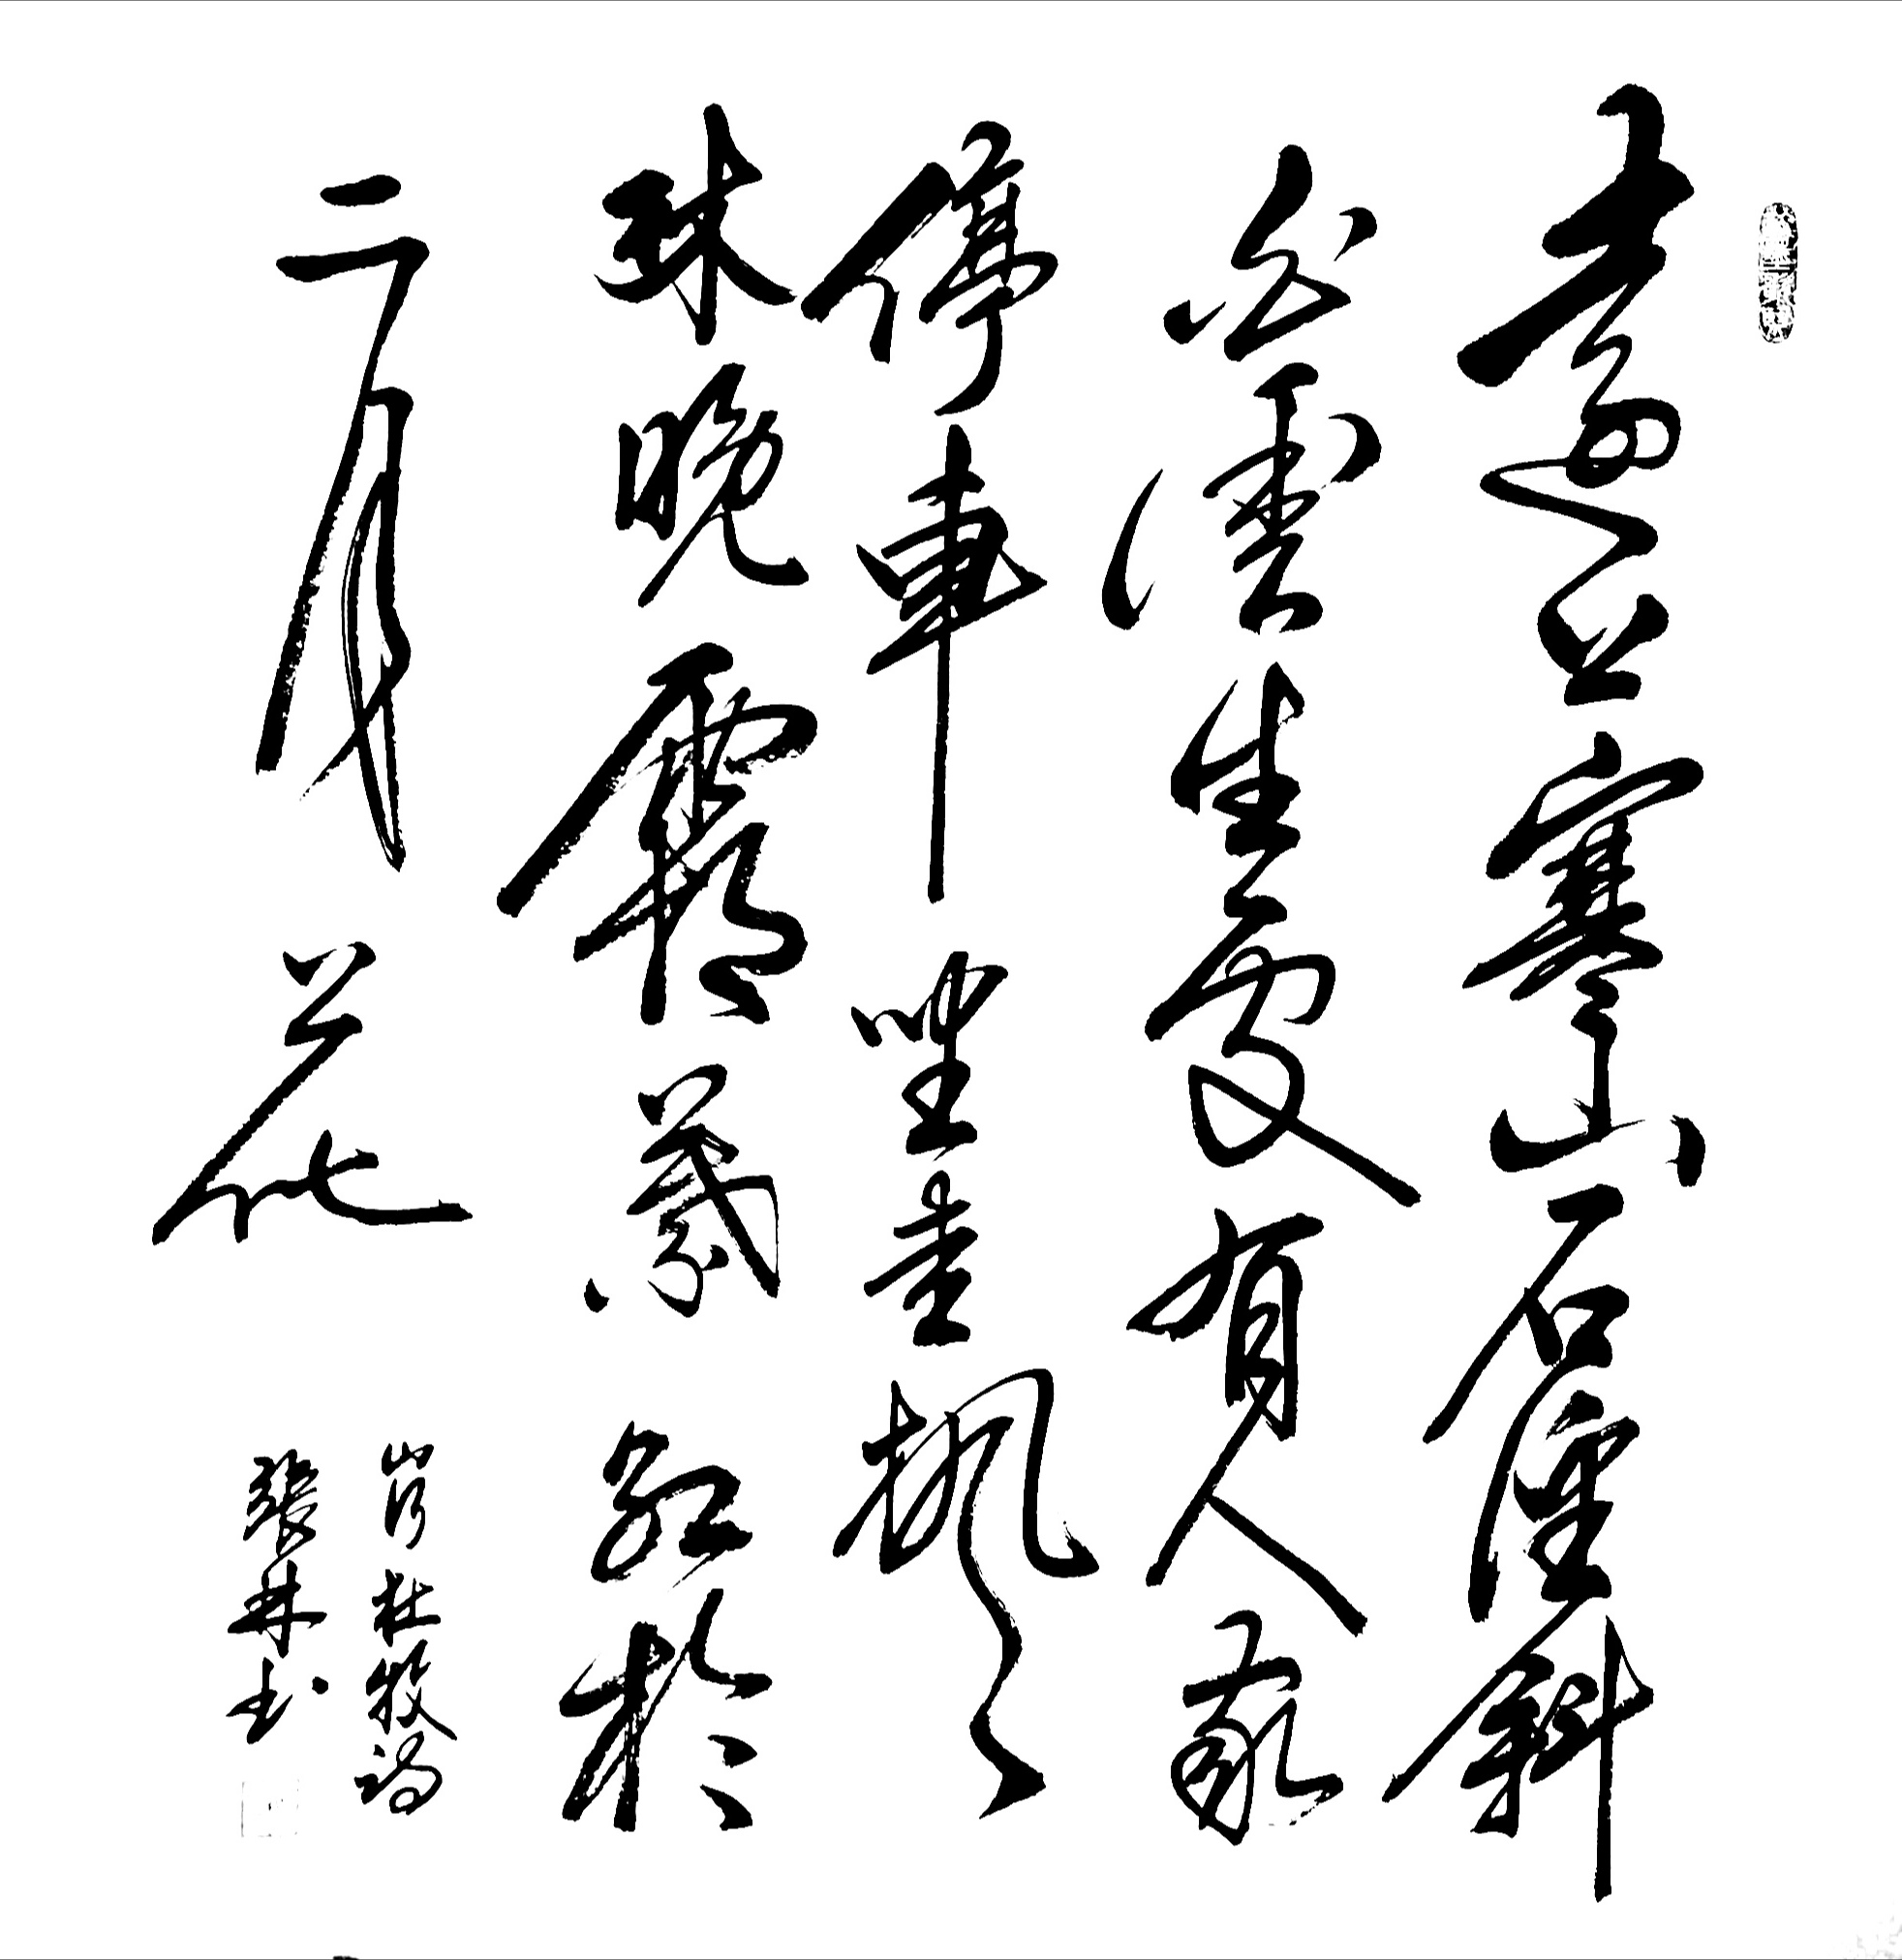 遠上寒山石徑斜
白雲生處有人家
停車坐愛楓
林晚霜葉紅於
二月花
杜牧詩
華書